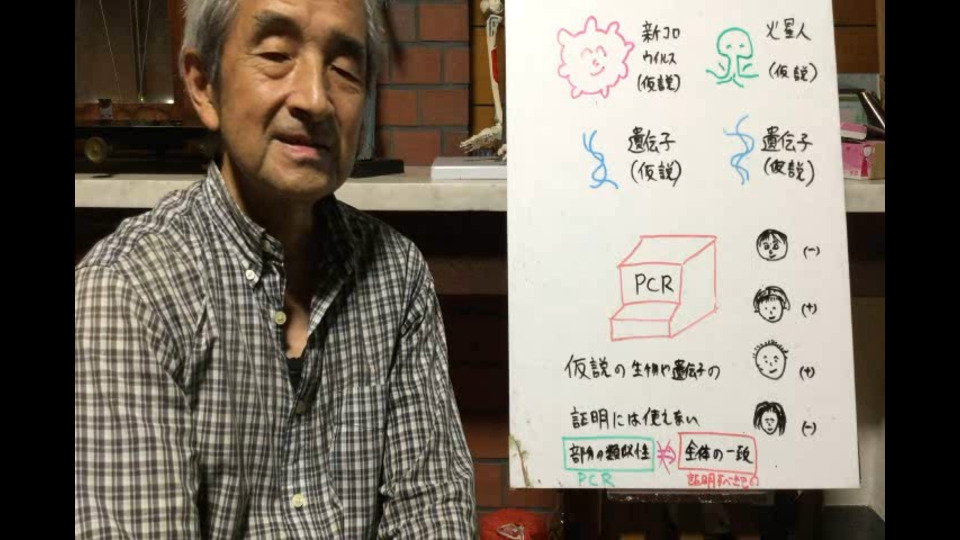 新コロ
ウイルス
(仮説)
火星人
(仮説)
遺伝子
(仮説)
遺伝子
(仮説)
PCR
(-)
(+)
(+)
(-)
仮説の生物や遺伝子の
証明には使えない
部分の類似性
全体の一致
PCR
証明すべきもの